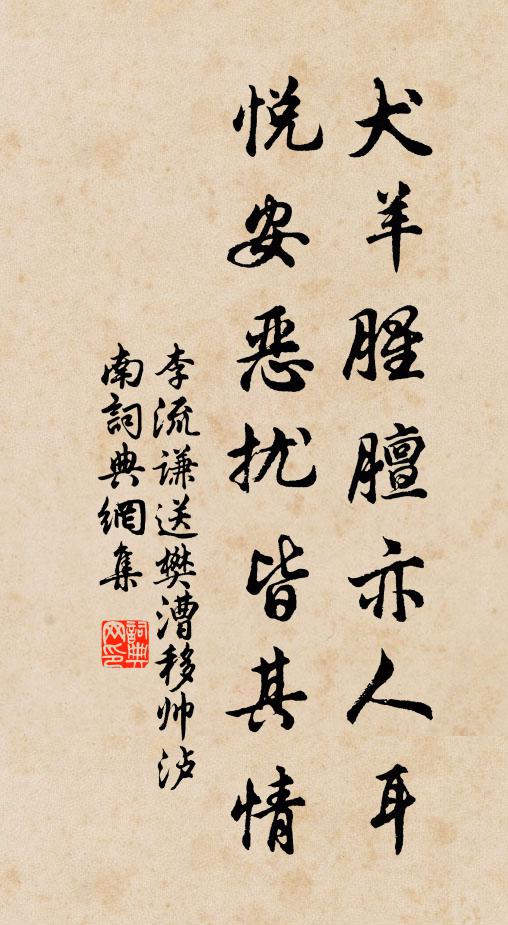 犬羊腥膻亦人耳
悦安恶扰皆其情
李流谦送樊漕移帅泸
南詞典網集
詞典
网印